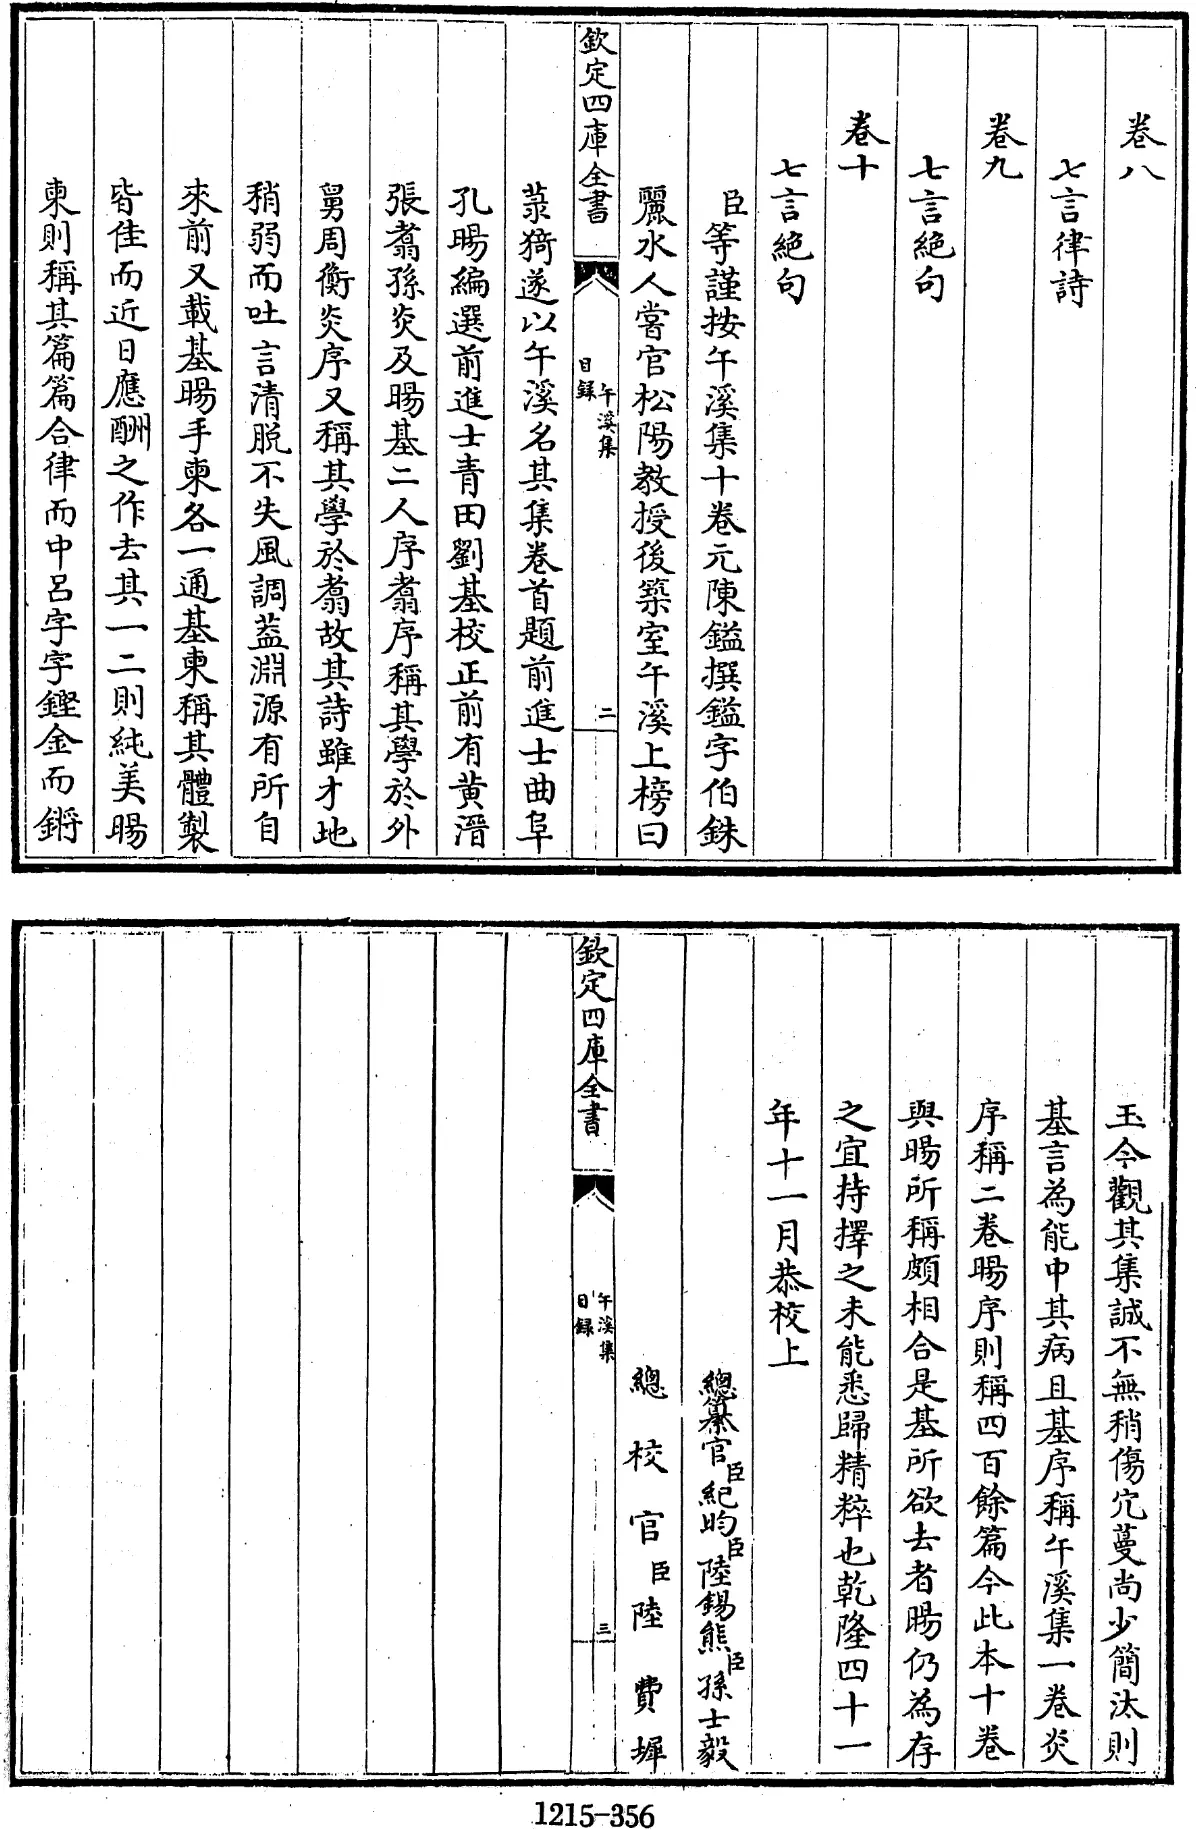 卷八
七言律詩
卷九
七言絶句
卷十
七言絶句
臣等謹按午溪集十卷元陳鎰撰鎰字伯銖
麗水人嘗官松陽教授後築室午溪上榜曰
欽定四庫全書
午溪集
目録
二
菉猗遂以午溪名其集卷首題前進士曲阜
孔暘編選前進士青田劉基校正前有黄溍
張翥孫炎及暘基二人序翥序稱其學於外
舅周衡炎序又稱其學於翥故其詩雖才地
稍弱而吐言清脱不失風調葢淵源有所自
來前又載基暘手柬各一通基柬稱其體製
皆佳而近日應酬之作去其一二則純美暘
柬則稱其篇篇合律而中呂字字鏗金而鏘
玉今觀其集誠不無稍傷宂蔓尚少簡汰則
基言為能中其病且基序稱午溪集一卷炎
序稱二卷暘序則稱四百餘篇今此本十卷
與暘所稱頗相合是基所欲去者暘仍為存
之宜持擇之未能悉歸精粹也乾隆四十一
年十一月恭校上
總纂官臣紀昀臣陸錫熊臣孫士毅
總校官臣陸費墀
欽定四庫全書
午溪集
目録
三
1215-356